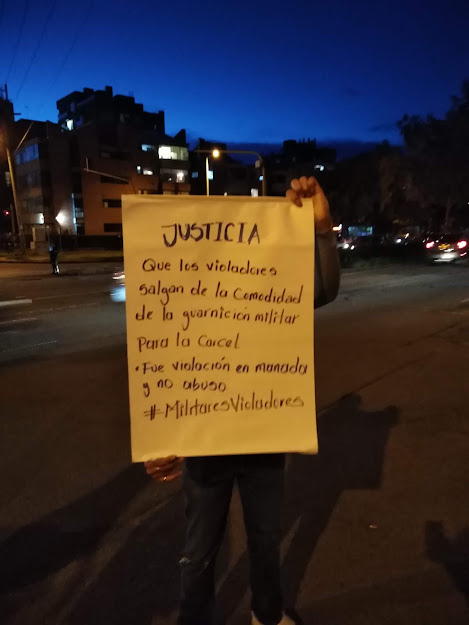 JUSTICIA
Que los violadores
salgan de la Comodidad
de la guarnición militar
para la Carcel
• Fue violación en manada
y no abuso
#MilitaresVioladores